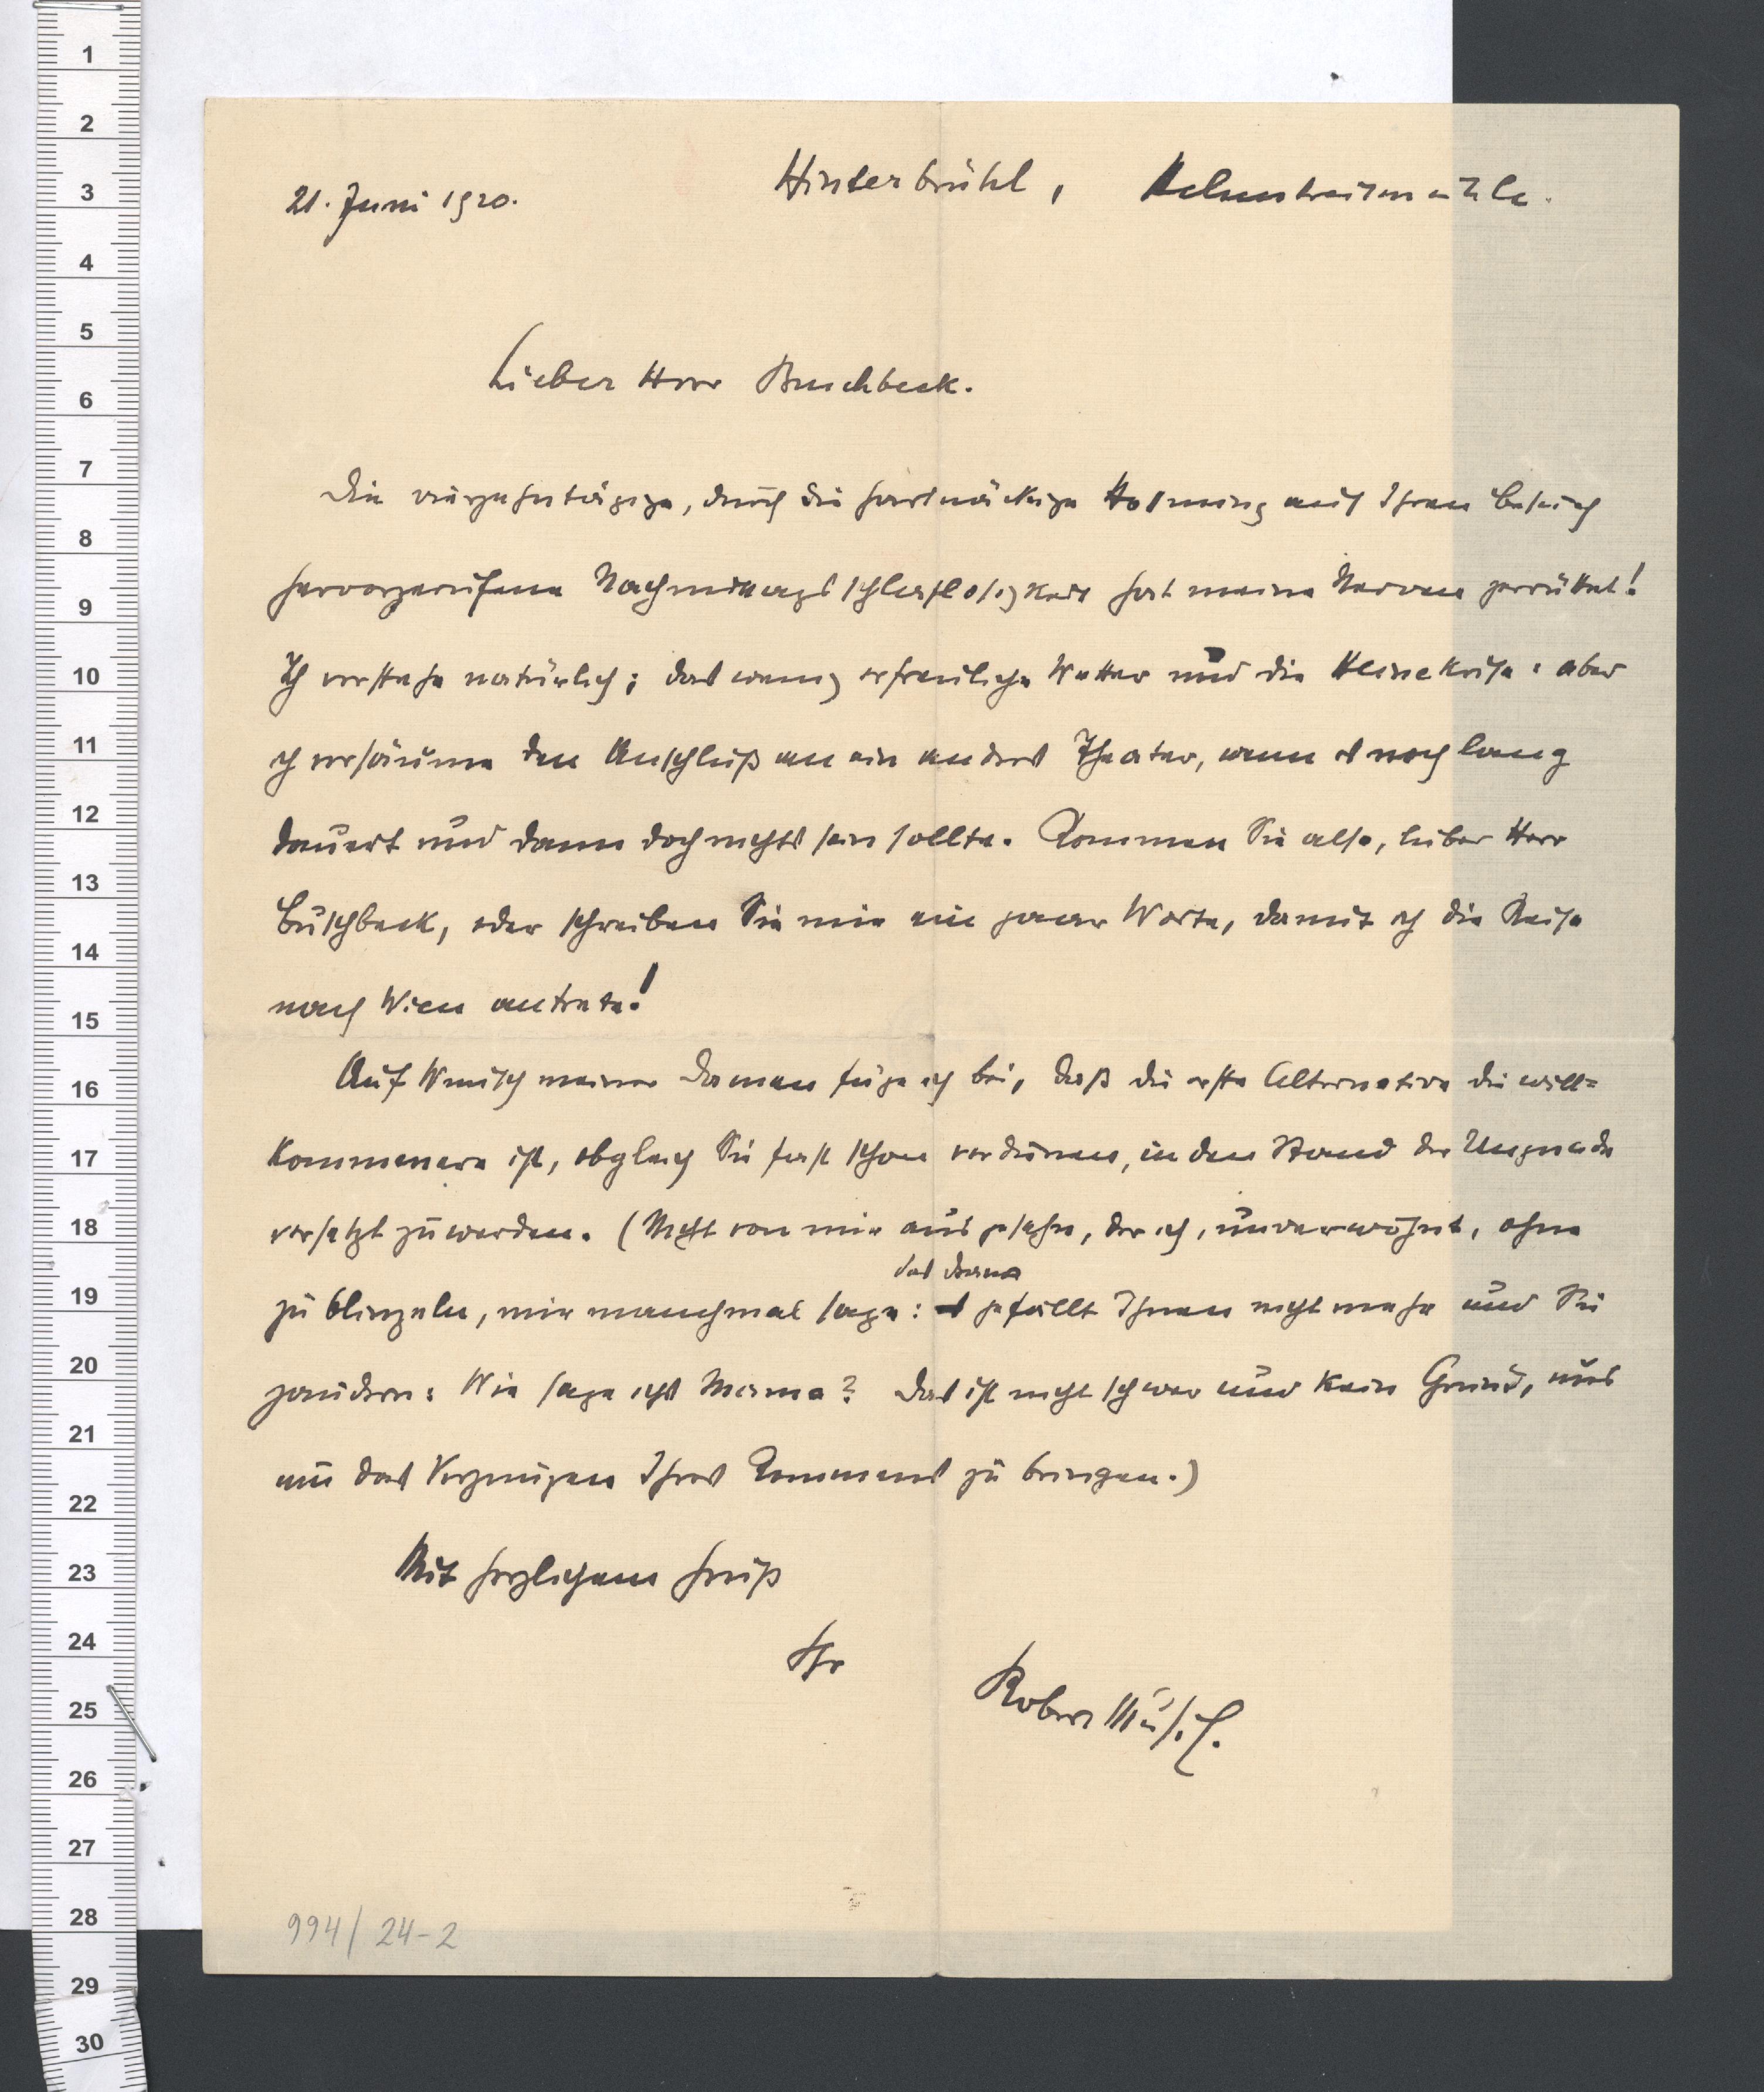 21. Juni 1920.
Hinterbrühl, Helmstreitmühle.
Lieber Herr Buschbeck.
Die vierzehntägige, durch die hartnäckige Hoffnung auf Ihren Besuch
hervorgerufene Nachmittagsschlaflosigkeit hat meine Nerven zerrüttet!
Ich verstehe natürlich; das wenig erfreuliche Wetter und die kleine Krise: aber
ich versäume den Anschluß an ein andres Theater, wenn es noch lang
dauert und dann doch nichts sein sollte. Kommen Sie also, lieber Herr
Buschbeck, oder schreiben Sie mir ein paar Worte, damit ich die Reise
nach Wien antrete!
Auf Wunsch meiner Damen füge ich bei, daß die erste Alternative die will=
kommenere ist, obgleich Sie fast schon verdienen, in den Stand der Ungnade
versetzt zu werden. (Nicht von mir aus gesehn, der ich, unverwöhnt, ohne
das Drama
zu blinzeln, mir manchmal sage: gefällt Ihnen nicht mehr und Sie
zaudern: Wie sage ichs Mama? Das ist nicht schwer und kein Grund, uns
um das Vergnügen Ihres Kommens zu bringen.)
Mit herzlichem Gruß
Ihr
Robert Musil.
994/24-2
1
2
3
4
5
6
7
8
9
10
11
12
13
14
15
16
17
18
19
20
21
22
23
24
25
26
27
28
29
30